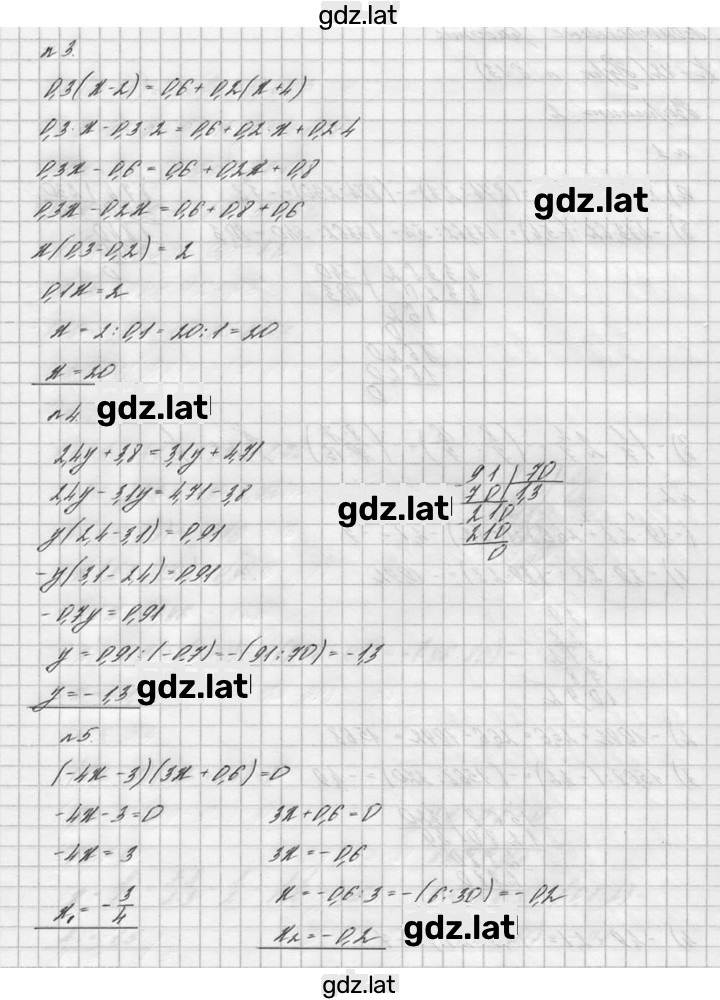 gdz.lat
n 3.
0,3(x-2)=0,6+0,2(x+4)
0,3·x-0,3·2=0,6+0,2·x+0,2·4
0,3x-0,6=0,6+0,2x+0,8
0,3x-0,2x=0,6+0,8+0,6
gdz.lat
x(0,3-0,2)=2
0,1x=2
x=2:0,1=20:1=20
x=20
n 4.
gdz.lat
2,4y+3,8=3,1y+4,71
2,4y-3,1y=4,71-3,8
y(2,4-3,1)=0,91
-y(3,1-2,4)=0,91
-0,7y=0,91
y=0,91:(-0,7)=-(91:70)=-1,3
y=-1,3
91 70
70 1,3
210
210
0
gdz.lat
gdz.lat
n 5.
(-4x-3)(3x+0,6)=0
-4x-3=0
-4x=3
x₁=-3/4
3x+0,6=0
3x=-0,6
x=-0,6:3=-(6:30)=-0,2
x₂=-0,2
gdz.lat
gdz.lat